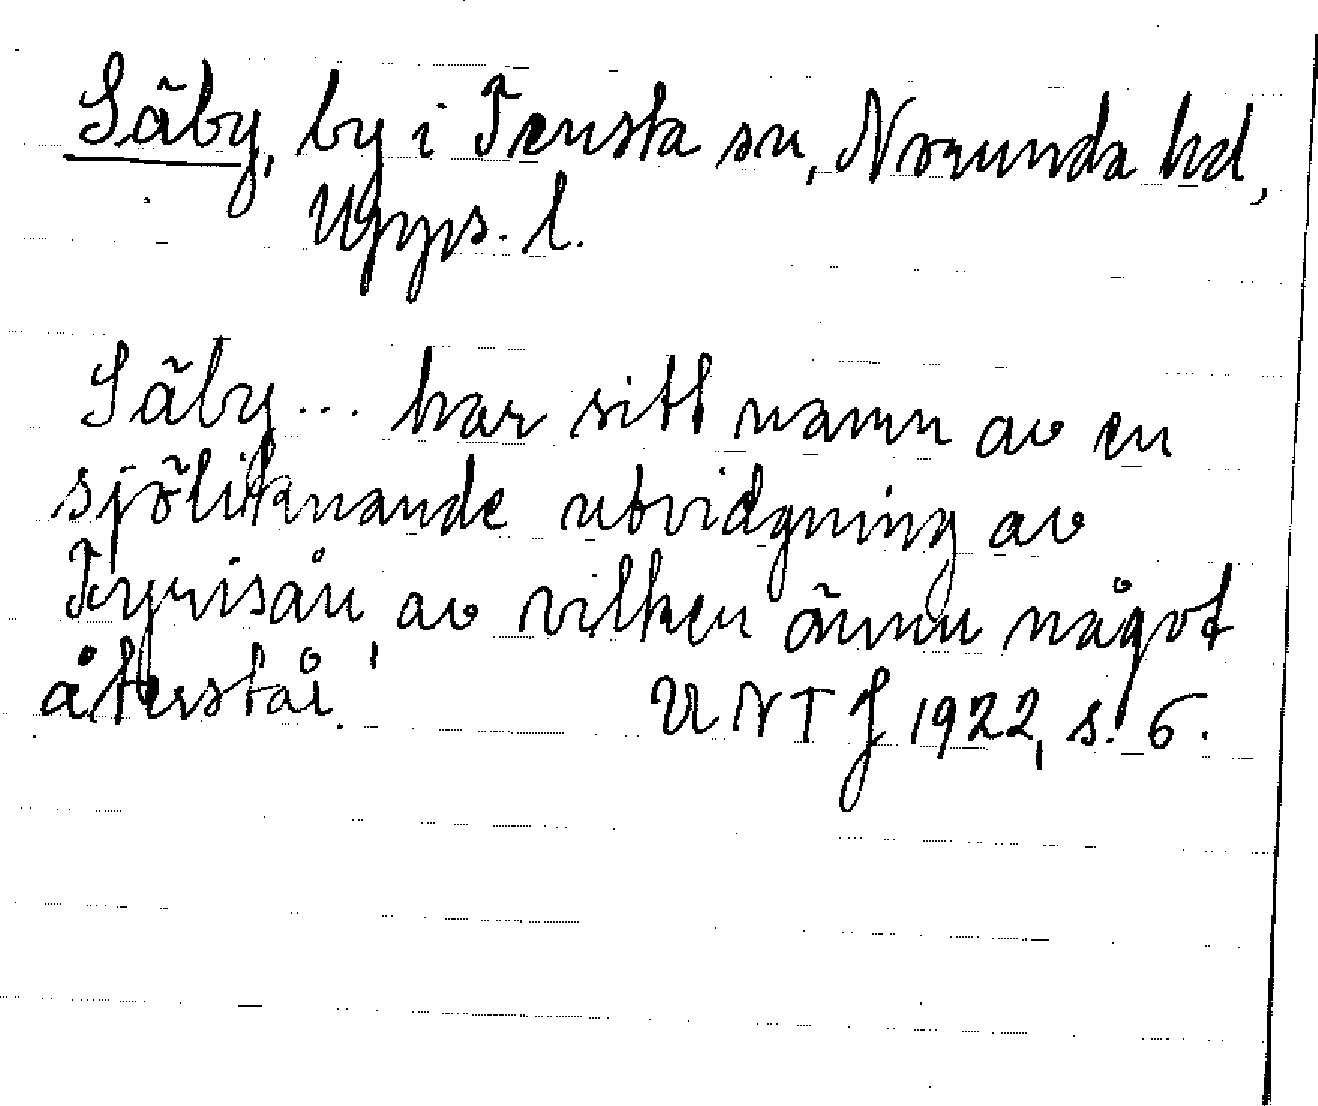 Säby, by i Tensta sn, Norunda hd,
Upps. l.
Säby... har sitt namn av en
sjöliknande utvidgning av
Fyrisån, av vilken ännu något
återstår.
UNT J 1922, s. 6.